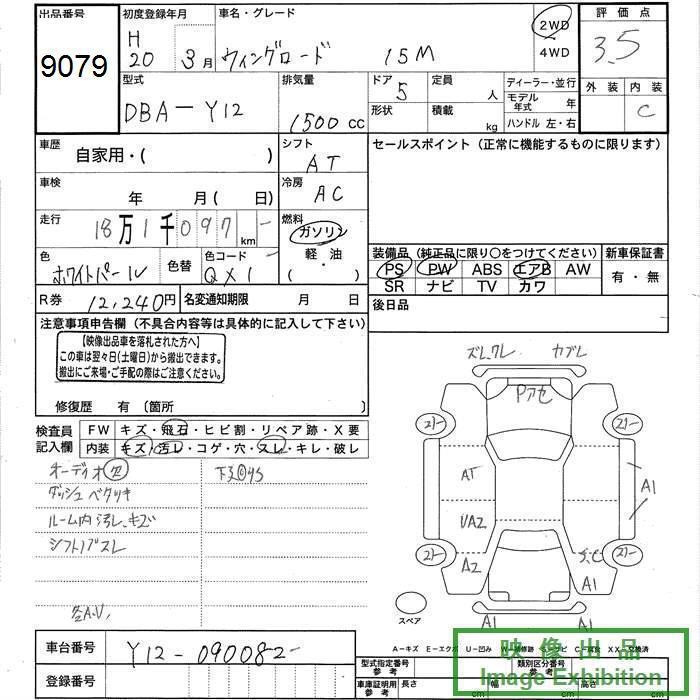 出品番号 初度登録年月 車名・グレード 評価点
9079 H 20 3月 ウィングロード 15M 2WD 4WD 3.5
型式 排気量 ドア 定員 ディーラー・並行 外装 内装
DBA-Y12 1500cc 5 人 モデル年式 年 C
形状 積載 kg ハンドル 左・右
車歴 自家用・( ) シフト AT セールスポイント (正常に機能するものに限ります)
車検 年 月( 日) 冷房 AC
走行 18万1千097km 燃料 ガソリン 軽・油 ( )
色 ホワイトパール 色替 色コード QX1
装備品 (純正品に限り○をつけてください) 新車保証書
PS PW ABS エアB AW 有・無
SR ナビ TV カワ
R券 12,240円 名変通知期限 月 日 後日品
注意事項申告欄 (不具合内容等は具体的に記入して下さい)
【映像出品車を落札された方へ】
この車は翌々日(土曜日)から搬出できます。
搬出にご来場・ご手配の際はご注意ください。
修復歴 有 〔箇所 〕
検査員記入欄 FW キズ・飛石・ヒビ割・リペア跡・X要
内装 キズ・汚レ・コゲ・穴・スレ・キレ・破レ
オーディオ欠
ダッシュベタツキ
ルーム内汚レ、キズ
シフトノブスレ
ズレ、ワレ カブレ
Pアセ
A1
A2
A1
A1
スペア
車台番号 Y12-090082
登録番号
A-キズ E-エクボ U-凹み
型式指定番号 参考 類別区分番号 参考
車庫証明用 参考 長さ cm 幅 cm 高さ cm
映像出品
Image Exhibition